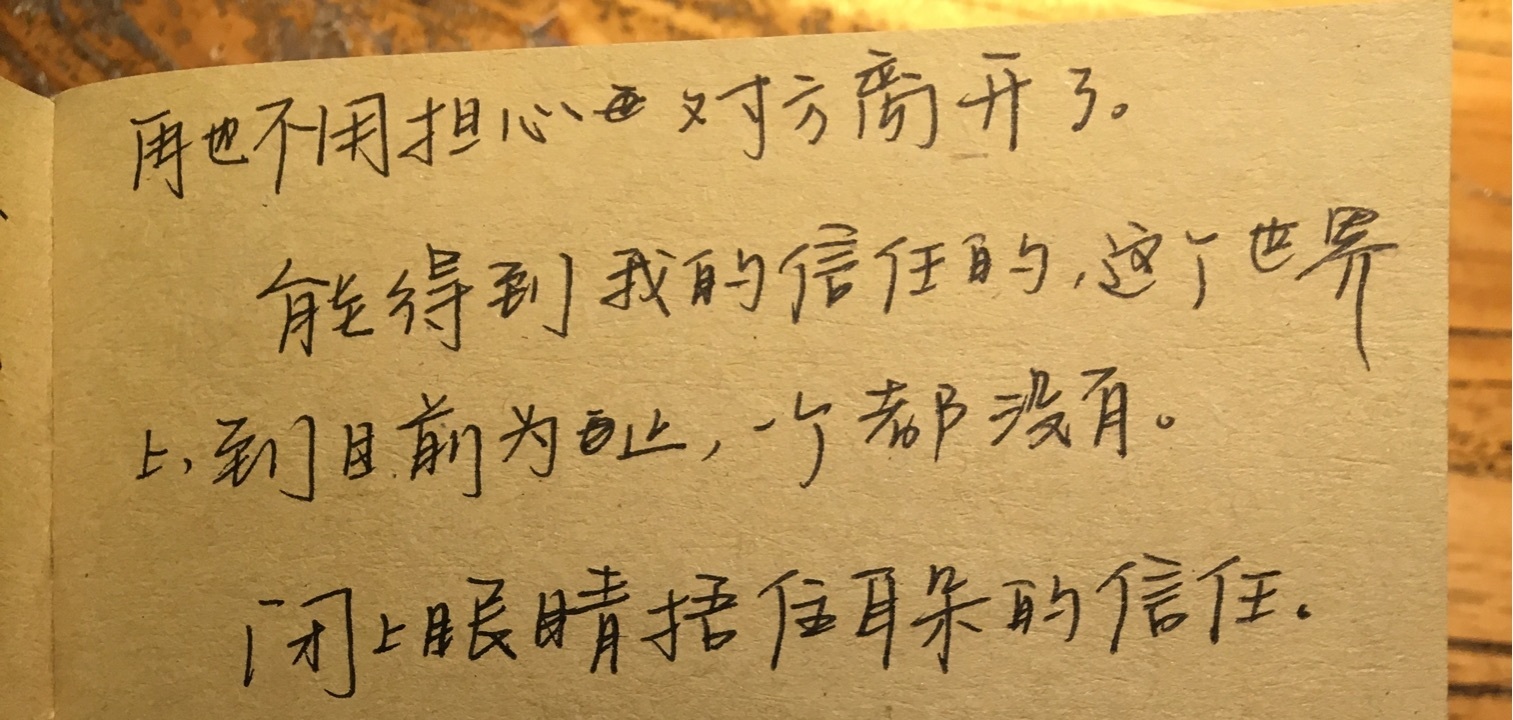 再也不用担心对方离开了。
能得到我的信任的,这个世界
上,到目前为止,一个都没有。
闭上眼睛捂住耳朵的信任.